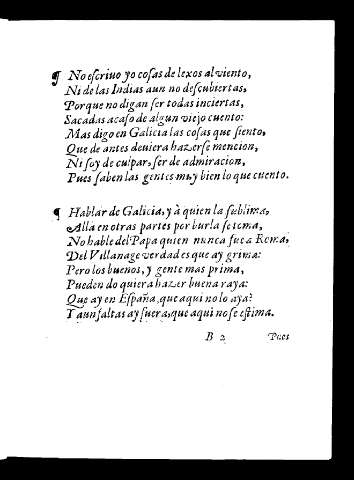 ¶ No escriuo yo cosas de lexos al viento,
Ni de las Indias aun no descubiertas,
Porque no digan ser todas inciertas,
Sacadas acaso de algun viejo cuento:
Mas digo en Galicia las cosas que siento,
Que de antes deuiera hazerse mencion,
Ni soy de culpar, ser de admiracion,
Pues saben las gentes muy bien lo que cuento.
¶ Hablar de Galicia, y à quien la sublima,
Alla en otras partes por burla se toma,
No hable del Papa quien nunca fue a Roma,
Del Villanage verdad es que ay grima:
Pero los buenos, y gente mas prima,
Pueden do quiera hazer buena raya:
Que ay en España, que aqui no lo aya?
Y aun faltas ay fuera, que aqui no se estima.
B 2 Pues